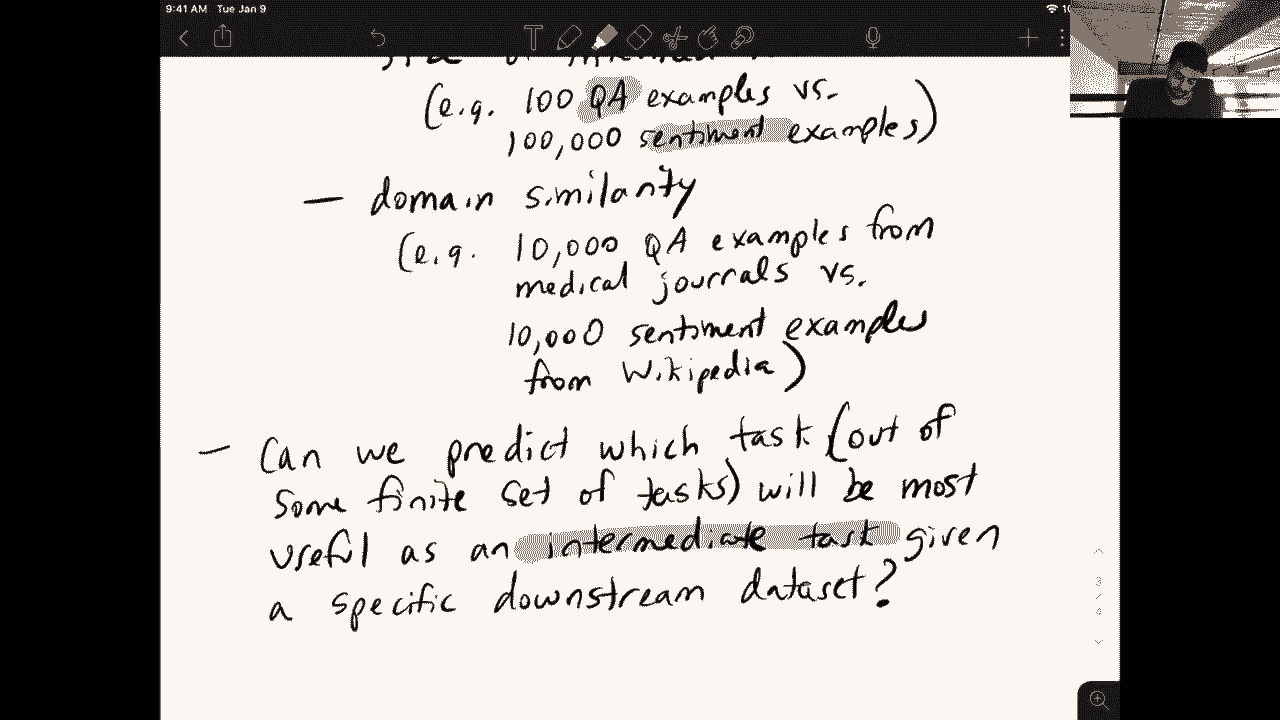 9:41 AM Tue Jan 9
(e.g. 100 QA examples vs.
100,000 sentiment examples)
— domain similarity
(e.g. 10,000 QA examples from
medical journals vs.
10,000 sentiment examples
from Wikipedia)
— Can we predict which task (out of
some finite set of tasks) will be most
useful as an intermediate task given
a specific downstream dataset?
3
/
4